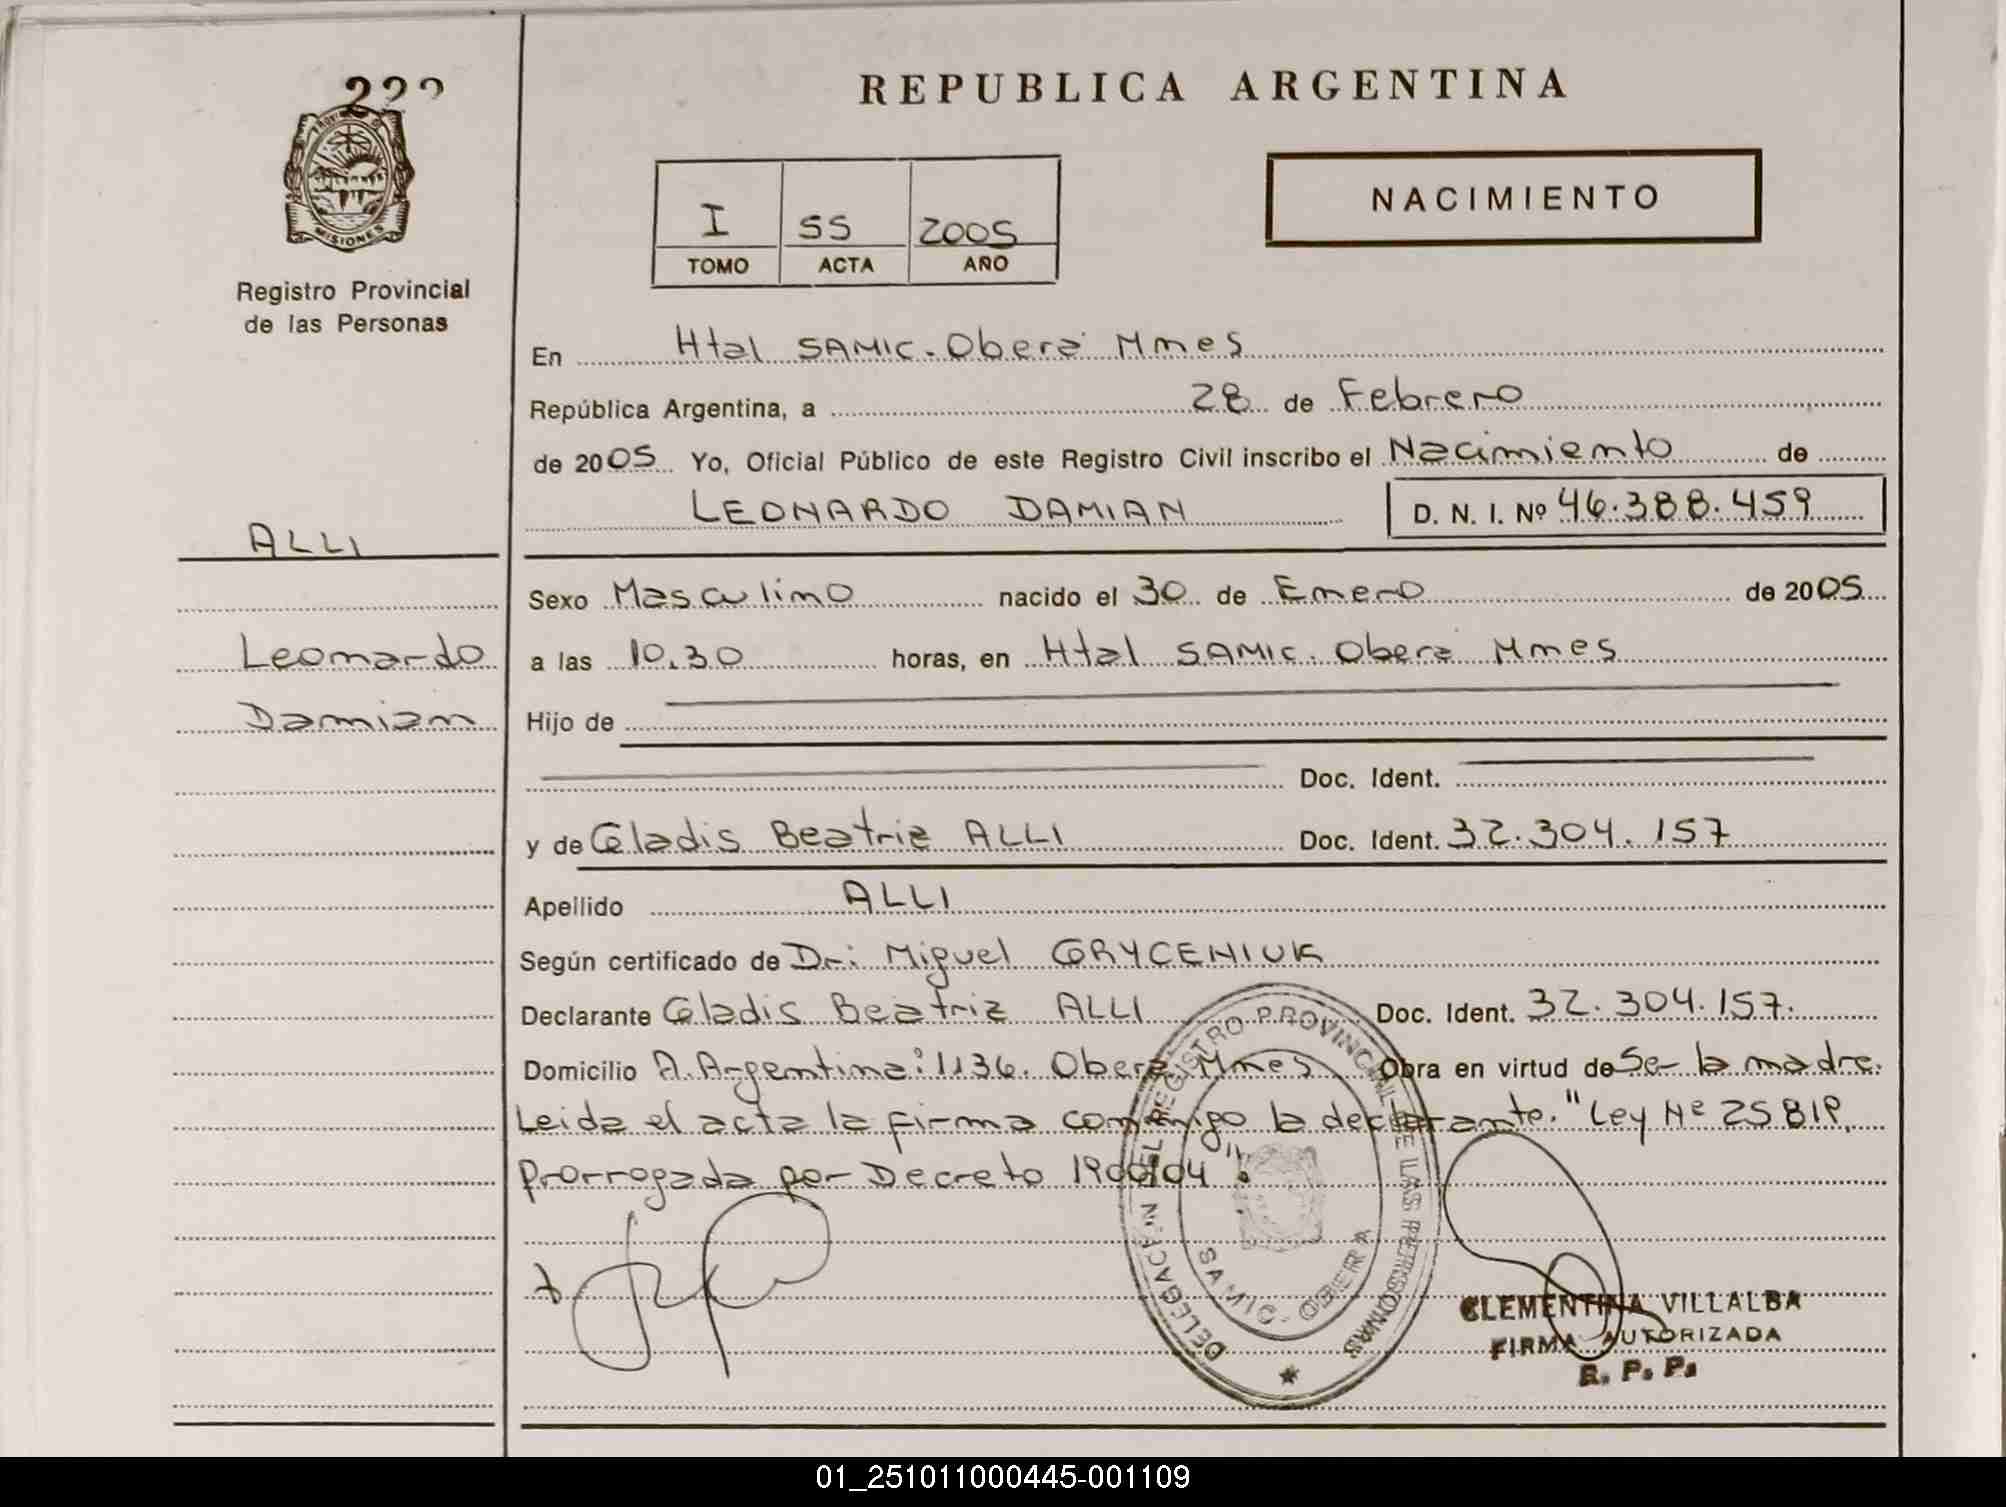 222
PROVINCIA DE
MISIONES
Registro Provincial
de las Personas
REPUBLICA ARGENTINA
NACIMIENTO
I 55 2005
TOMO ACTA AÑO
En Htal SAMIC. Oberá Mnes
República Argentina, a 28 de Febrero
de 2005 Yo, Oficial Público de este Registro Civil inscribo el Nacimiento de
LEONARDO DAMIAN D. N. I. Nº 46.388.459
ALLI
Leonardo
Damian
Sexo Masculino nacido el 30 de Enero de 2005
a las 10.30 horas, en Htal SAMIC. Oberá Mnes
Hijo de
Doc. Ident.
y de Gladis Beatriz ALLI Doc. Ident. 32.304.157
Apellido ALLI
Según certificado de Dr: Miguel GRYCENIUK
Declarante Gladis Beatriz ALLI Doc. Ident. 32.304.157.
Domicilio A. Argentina: 1136. Oberá Mnes Obra en virtud de Ser la madre.
Leida el acta la firma conmigo la declarante. "Ley Nº 25819,
Prorrogada por Decreto 1900/04".
DELEGACION DEL REGISTRO PROVINCIAL DE LAS PERSONAS
SAMIC - OBERA
CLEMENTINA VILLALBA
FIRMA AUTORIZADA
R. P. P.
01_251011000445-001109